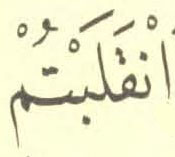 انْقَلَبْتُمْ